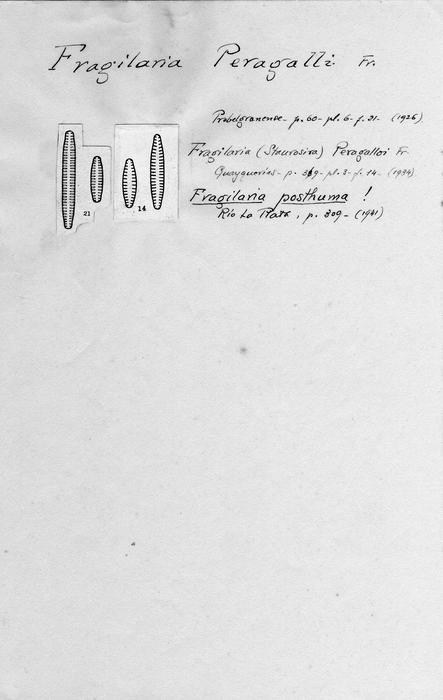 Fragilaria Peragalli Fr.
Prebelgranense - p. 60 - pl. 6 - f. 21 - (1926)
Fragilaria (Staurosira) Peragalloi Fr
p. - pl. 3 - f. 14 - (1934)
Fragilaria posthuma !
Rio La Plata, p. 309 - (1941)
21
14